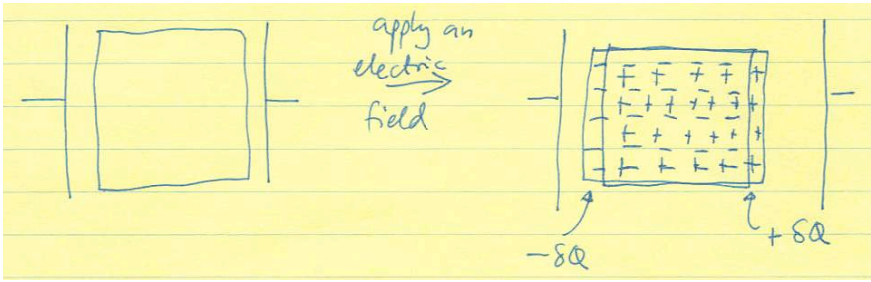 apply an
electric
field
−δQ
+δQ